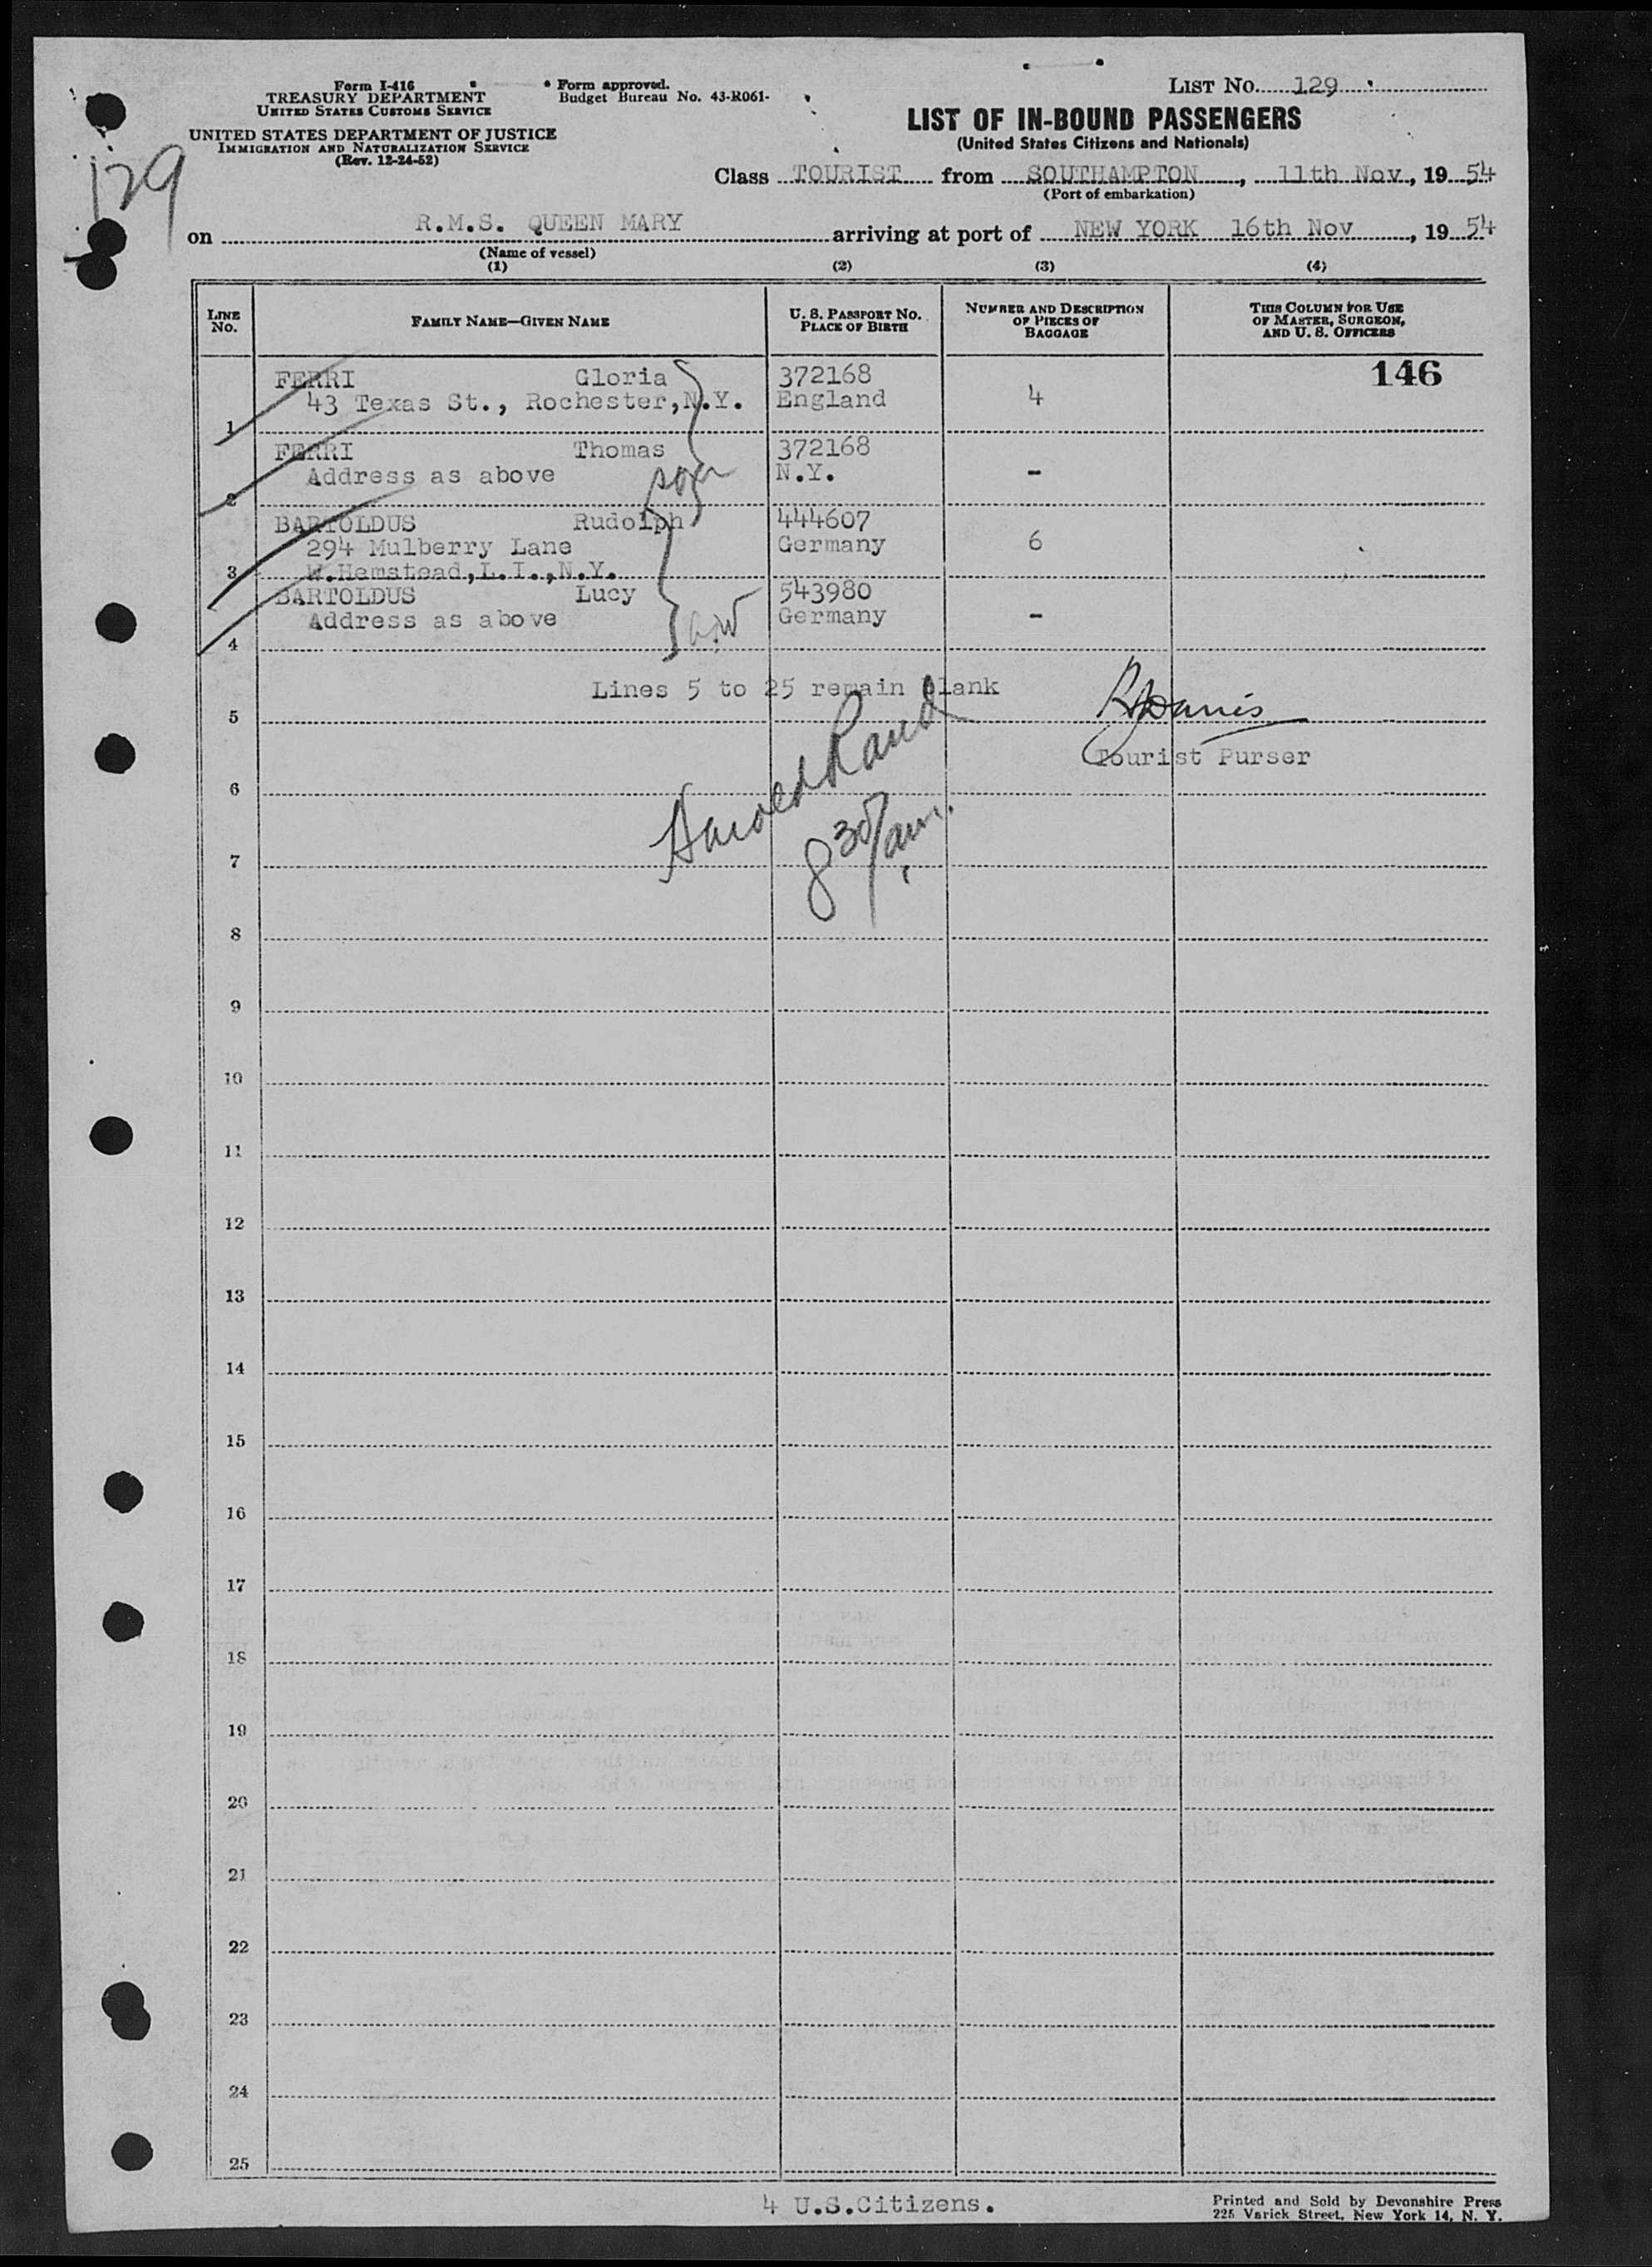 Form I-416
TREASURY DEPARTMENT
UNITED STATES CUSTOMS SERVICE
UNITED STATES DEPARTMENT OF JUSTICE
IMMIGRATION AND NATURALIZATION SERVICE
(Rev. 12-24-52)
Form approved.
Budget Bureau No. 43-R061-
LIST No. 129
129
LIST OF IN-BOUND PASSENGERS
(United States Citizens and Nationals)
Class TOURIST from SOUTHAMPTON, 11th Nov, 19 54
(Port of embarkation)
on R.M.S. QUEEN MARY arriving at port of NEW YORK 16th Nov, 19 54
(Name of vessel)
(1) (2) (3) (4)
LINE No. FAMILY NAME—GIVEN NAME U. S. PASSPORT No. PLACE OF BIRTH NUMBER AND DESCRIPTION OF PIECES OF BAGGAGE THIS COLUMN FOR USE OF MASTER, SURGEON, AND U. S. OFFICERS
146
FERRI Gloria 372168
43 Texas St., Rochester, N.Y. England 4
1
FERRI Thomas 372168
Address as above N.Y. -
2
BARTOLDUS Rudolph 444607
294 Mulberry Lane Germany 6
3 W.Hemstead,L.I.,N.Y.
BARTOLDUS Lucy 543980
Address as above Germany -
4
Lines 5 to 25 remain blank
5
Tourist Purser
6
Harold Rand
8 30/am.
7
8
9
10
11
12
13
14
15
16
17
18
19
20
21
22
23
24
25
4 U.S.Citizens.
Printed and Sold by Devonshire Press
225 Varick Street, New York 14, N. Y.